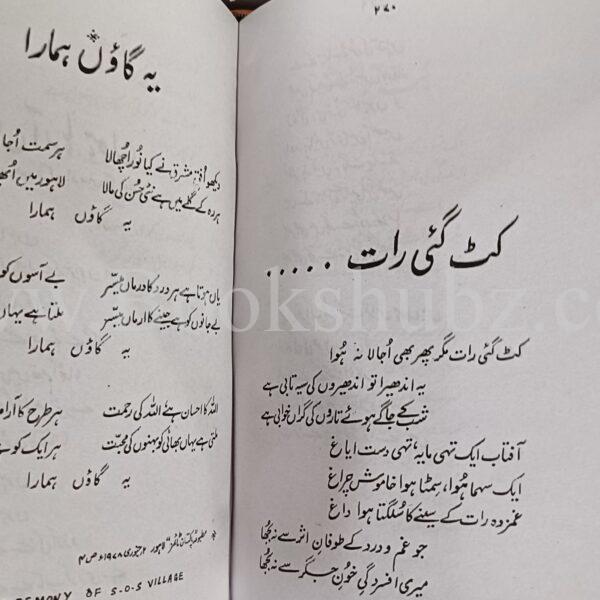 ۲۷۰
کٹ گئی رات .....
کٹ گئی رات مگر پھر بھی اُجالا نہ ہُوا
یہ اندھیرا تو اندھیروں کی سیہ تابی ہے
شب کے جاگے ہوئے تاروں کی گراں خوابی ہے
آفتاب ایک تہی مایہ، تہی دست ایاغ
ایک سہما ہُوا، سِمٹا ہوا خاموش چراغ
غمزدہ رات کے سینے کا سُلگتا ہوا داغ
جو غم و درد کے طوفانِ اثر سے نہ بُجھا
میری افسردگیِ خونِ جگر سے نہ بُجھا
یہ گاؤں* ہمارا
دیکھو اُفقِ مشرق نے کیا نُور اُچھالا ہر سمت اُجا
ہر دہ کے گلے میں ہے نئی حُسن کی مالا لاہور میں
یہ گاؤں ہمارا
یاں ہوتا ہے ہر درد کا درماں میسّر بے آسوں کو
بے جانوں کو ہے جینے کا ارماں میسّر ملتا ہے یہاں
یہ گاؤں ہمارا
اللہ کا احسان ہے اللہ کی رحمت ہر طرح کا آرا
ملتی ہے یہاں بھائی کو بہنوں کی محبّت ہر ایک کو
یہ گاؤں ہمارا
* مطبوعہ پاکستان ٹائمز لاہور ۲ جنوری ۱۹۷۸ء ص ۴
REMONY OF S-O-S VILLAGE
www.bookshubz.com